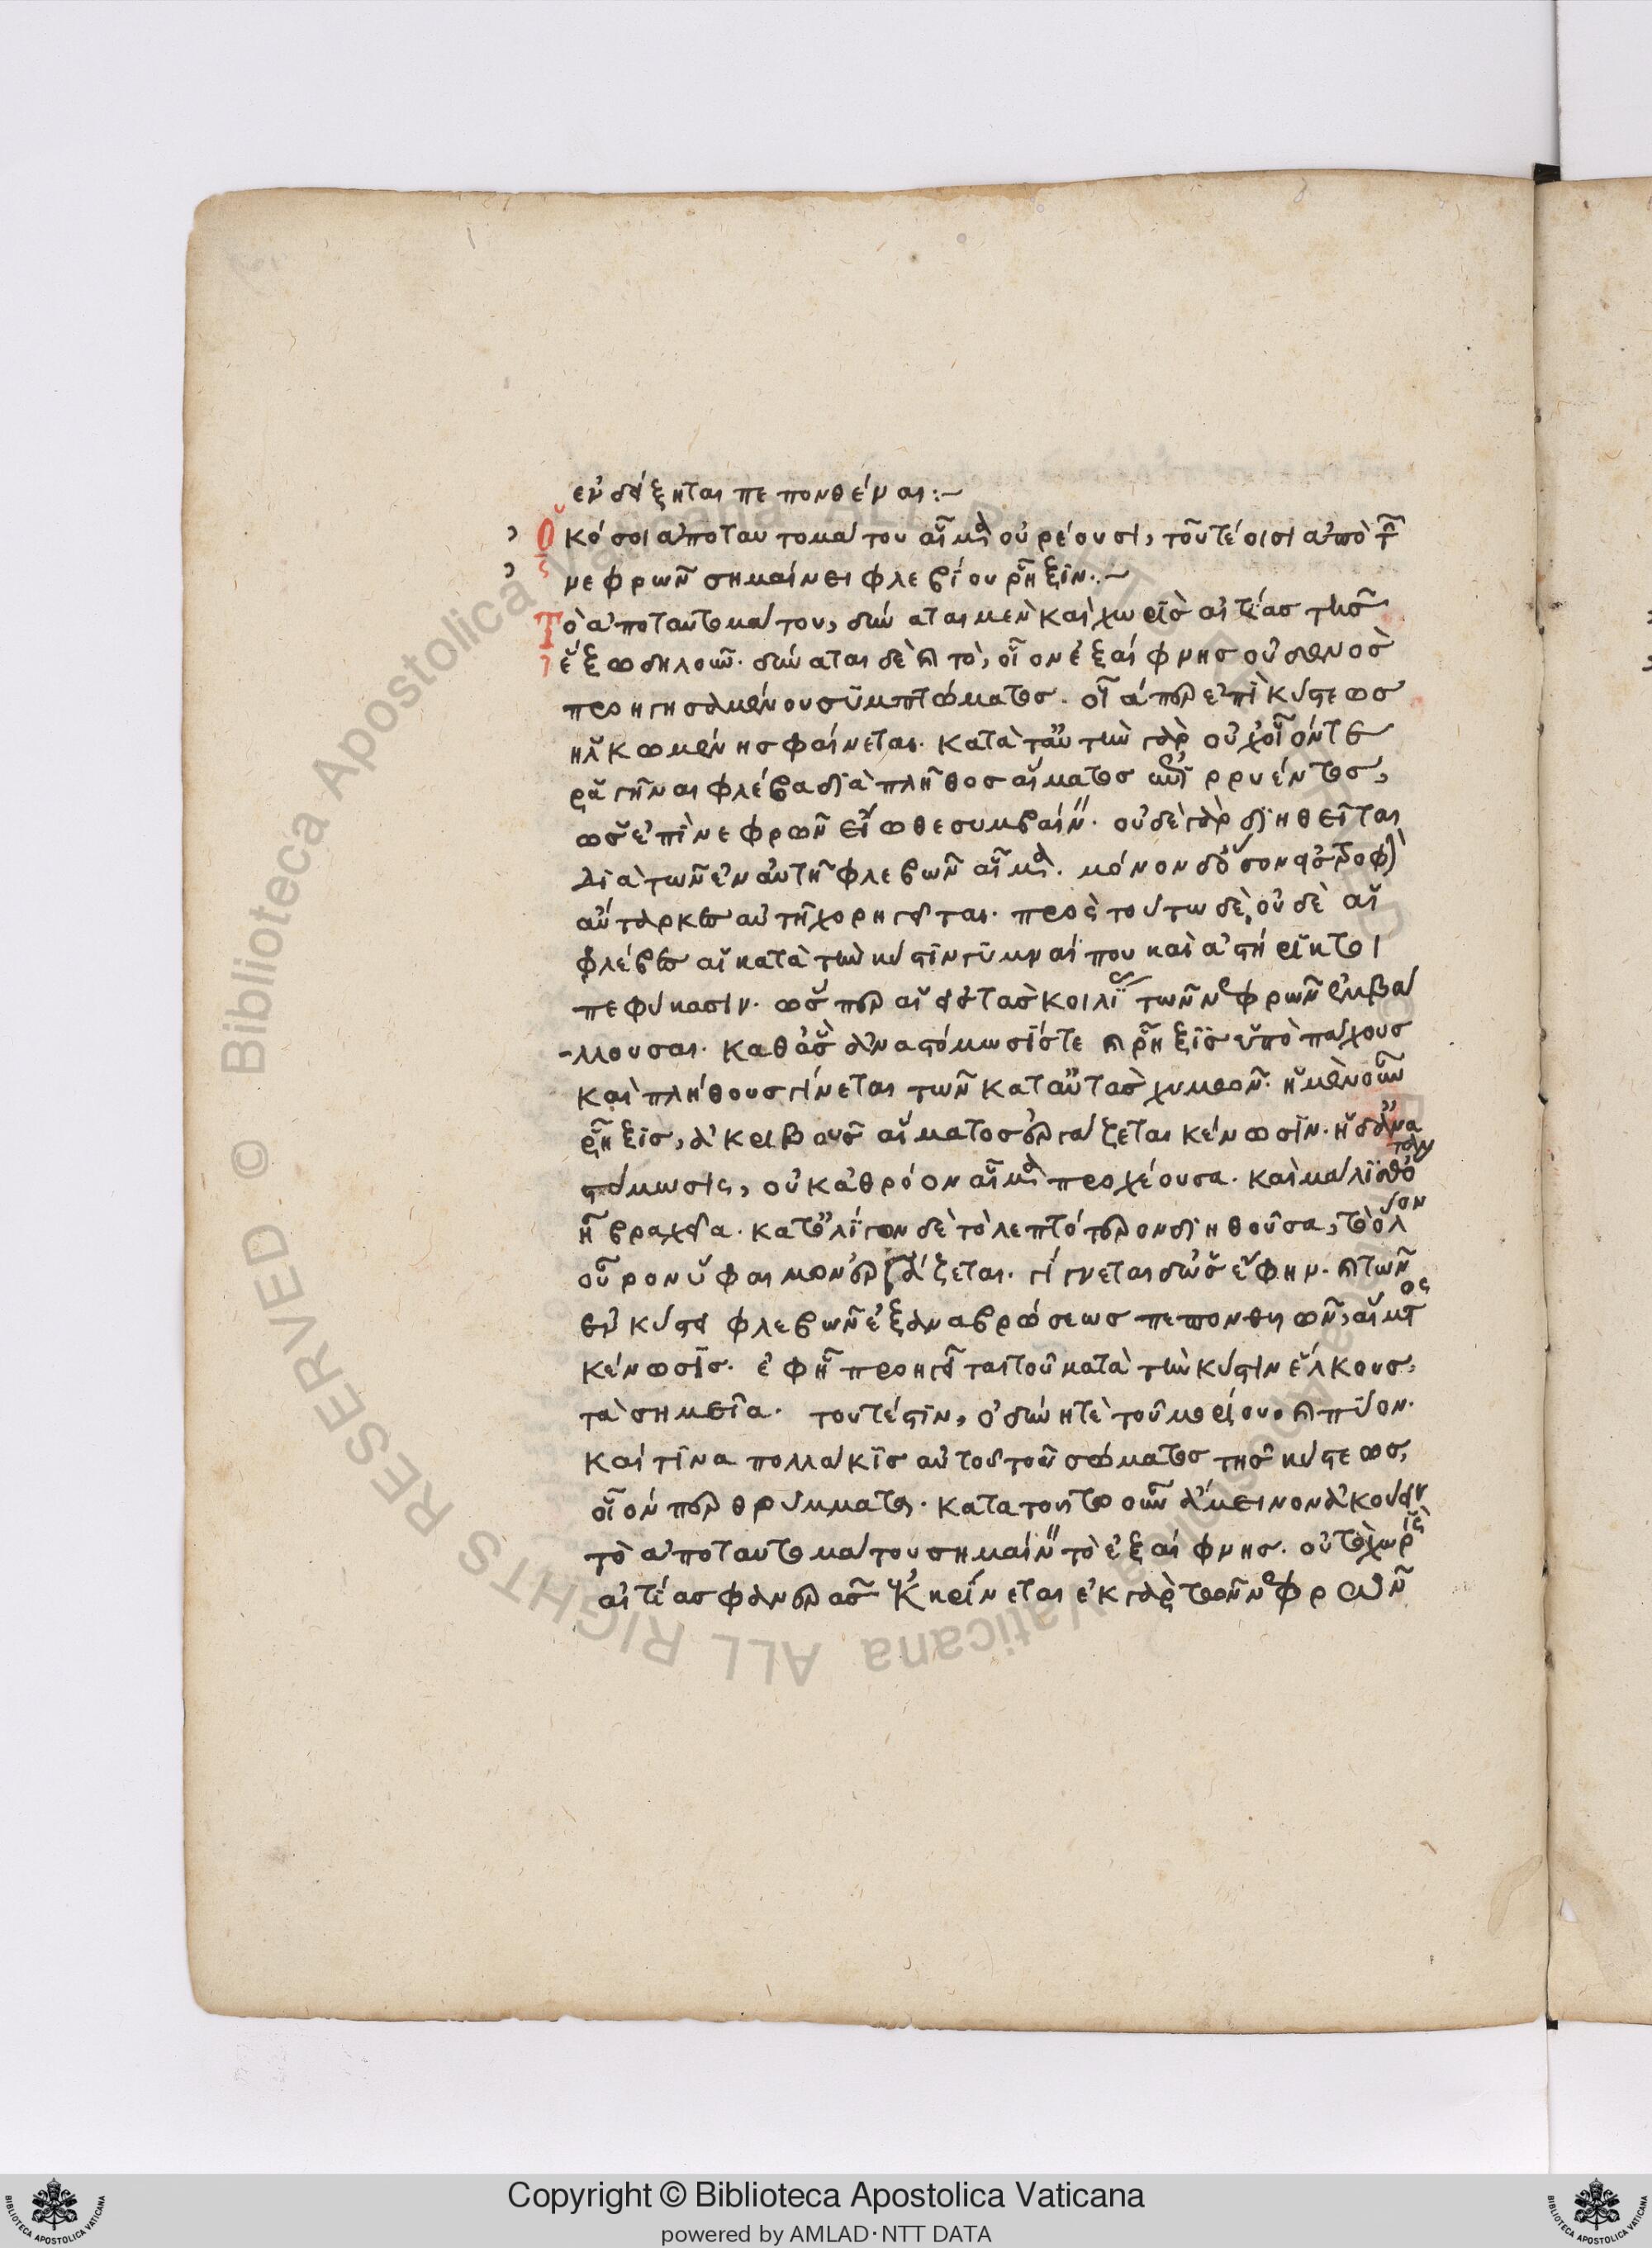 ἐνδείξηται πεπονθέναι:~
Ὁκόσοι ἀπο ταυτομάτου αἷμα οὐρέουσι, τουτέοισι ἀπὸ τ
νεφρῶν σημαίνει φλεβίου ῥῆξιν:~
Τὸ ἀπο ταυτομάτου, δύναται μὲν καὶ χωρὶς αἰτίας τῆς
ἔξω δηλοῦν. δύναται δὲ καὶ τὸ, οἷον ἐξαίφνης οὐδενὸς
προηγησαμένου συμπτώματος. οἷάπερ ἐπὶ κύστεως
ἡλκωμένης φαίνεται. κατὰ ταύτην γὰρ οὐχ οἷόν τε
ῥαγῆναι φλέβα διὰ πλῆθος αἵματος ἐπιρρυέντος,
ὡς ἐπὶ νεφρῶν εἴωθε συμβαίνειν. οὐδὲ γὰρ διηθεῖται
διὰ τῶν ἐν αὐτῇ φλεβῶν αἷμα. μόνον δ' ὅσον εἰς τροφὴν
αὐτάρκες αὐτῇ χορηγεῖται. πρὸς τούτω δὲ, οὐδὲ αἱ
φλέβες αἱ κατὰ τὴν κύστιν γυμναί που καὶ ἀστήρικτοι
πεφύκασιν. ὥσπερ αἱ εἰς τὰς κοιλίας τῶν νεφρῶν ἐμβάλ
-λουσαι. καθ' ἃς ἀναστόμωσίς τε καὶ ῥῆξις ὑπὸ πάχους
καὶ πλήθους γίνεται τῶν κατ' αὐτὰς χυμῶν. ἡ μὲν οὖν
ῥῆξις, ἀκριβοῦς αἵματος ἐργάζεται κένωσιν. ἡ δ' ἀνα
στόμωσις, οὐκ ἀθρόον αἷμα προχέουσα. καὶ μάλισθ' ὅταν
ᾖ βραχεῖα. κατ' ὀλίγον δὲ τὸ λεπτότερον διηθοῦσα, τὸ ὅλον
οὖρον ὕφαιμον ἐργάζεται. γίγνεται δ' ὡς ἔφην. καὶ τῶν
ἐν κύστει φλεβῶν ἐξ ἀναβρώσεως πεπονθυιῶν, αἵματος
κένωσις. ἐφ' ᾗ προηγεῖται τοῦ κατὰ τὴν κύστιν ἕλκους,
τὰ σημεῖα. τουτέστιν, ὀδύνη τε τοῦ μορίου καὶ πύον.
καί τινα πολλάκις αὐτοῦ τοῦ σώματος τῆς κύστεως,
οἷόν περ θρύμματα. κατὰ τοῦτο οὖν ἄμεινον ἀκούειν
τὸ ἀπο ταυτομάτου σημαίνειν τὸ ἐξαίφνης. οὐ τὸ χωρὶς
αἰτίας φανερᾶς ἐκκρίνεται ἐκ γὰρ τῶν νεφρῶν
Copyright © Biblioteca Apostolica Vaticana
powered by AMLAD·NTT DATA
Biblioteca Apostolica Vaticana ALL RIGHTS RESERVED ©